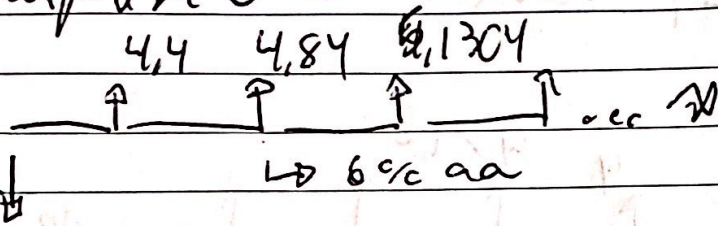 4,4 4,84 5,1304
↳ 6 % aa